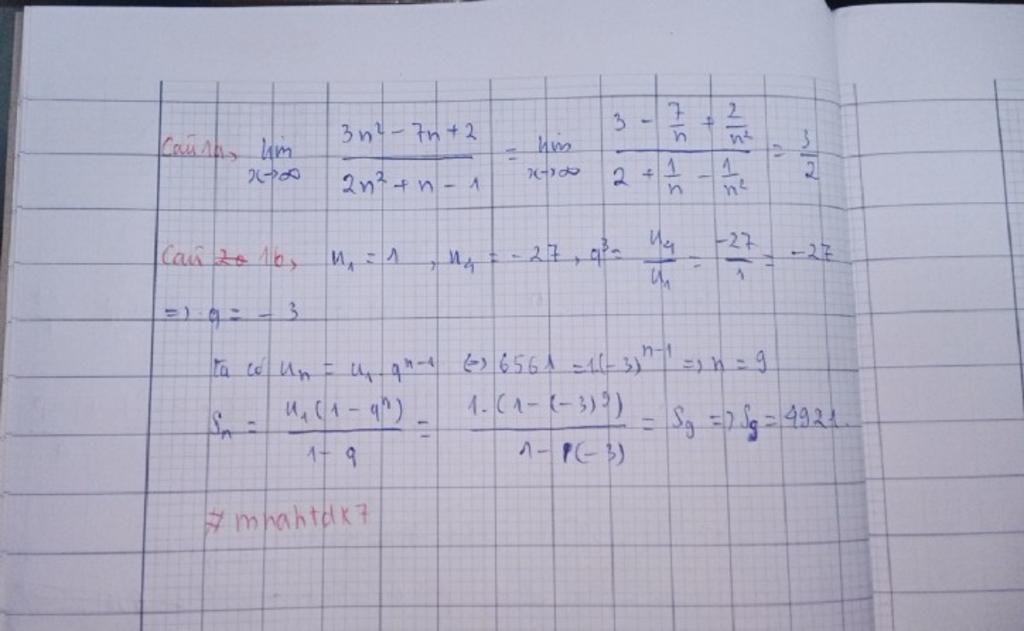 Câu 1a, lim x→∞ (3n² - 7n + 2)/(2n² + n - 1) = lim x→∞ (3 - 7/n + 2/n²)/(2 + 1/n - 1/n²) = 3/2
Câu 1b, u₁ = 1, u₄ = -27, q³ = u₄/u₁ = -27/1 = -27
=> q = -3
Ta có uₙ = u₁.qⁿ⁻¹ <=> 6561 = 1(-3)ⁿ⁻¹ => n = 9
Sₙ = u₁(1 - qⁿ)/(1 - q) = 1.(1 - (-3)⁹)/(1 - (-3)) = S₉ => S₉ = 4921.
# mhahtdk7